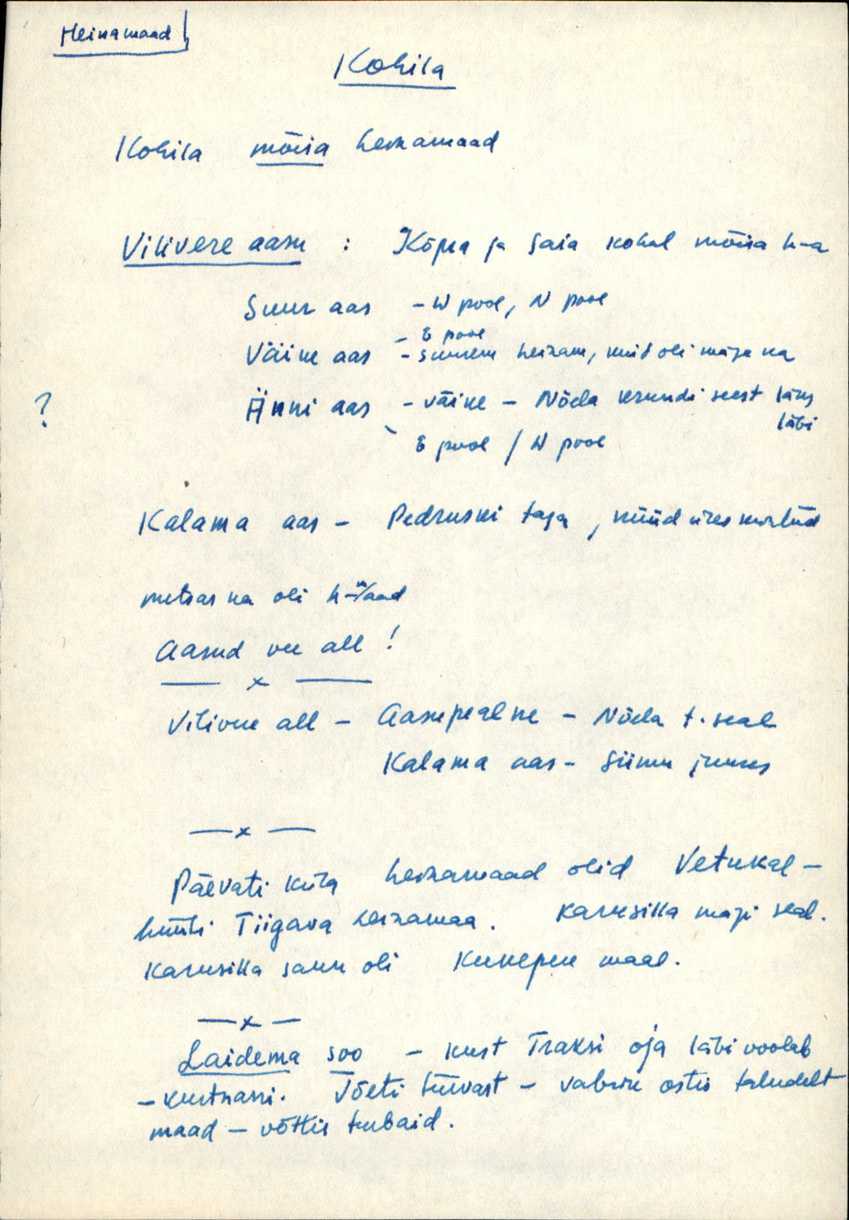 Heinamaad
Kohila
Kohila mõisa heinamaad
Vilivere aasu : Kõpra ja Saia kohal mõisa h-a
Suur aas - W pool, N pool
- E pool
Väike aas - suurem heinam, muist oli mäje ka
? Änni aas - väike - Nõela krundi seest läks
läbi
E pool / W pool
Kalama aas - Pedruski taga, nüüd üles
metsas ka oli h-maad
Aasud vee all !
— x —
Vilivere all - Aasapealne - Nõela t. seal
Kalama aas - Siimu juures
— x —
Päevati küla heinamaad olid Vetukal -
hüüti Tiigava heinamaa. Karusilla mägi seal.
Karusilla saun oli Kukepere maal.
— x —
Laidema soo - kust Traksi oja läbi voolab
- Tõeti turvast - vabrik ostis taludelt
maad - võttis turbaid.